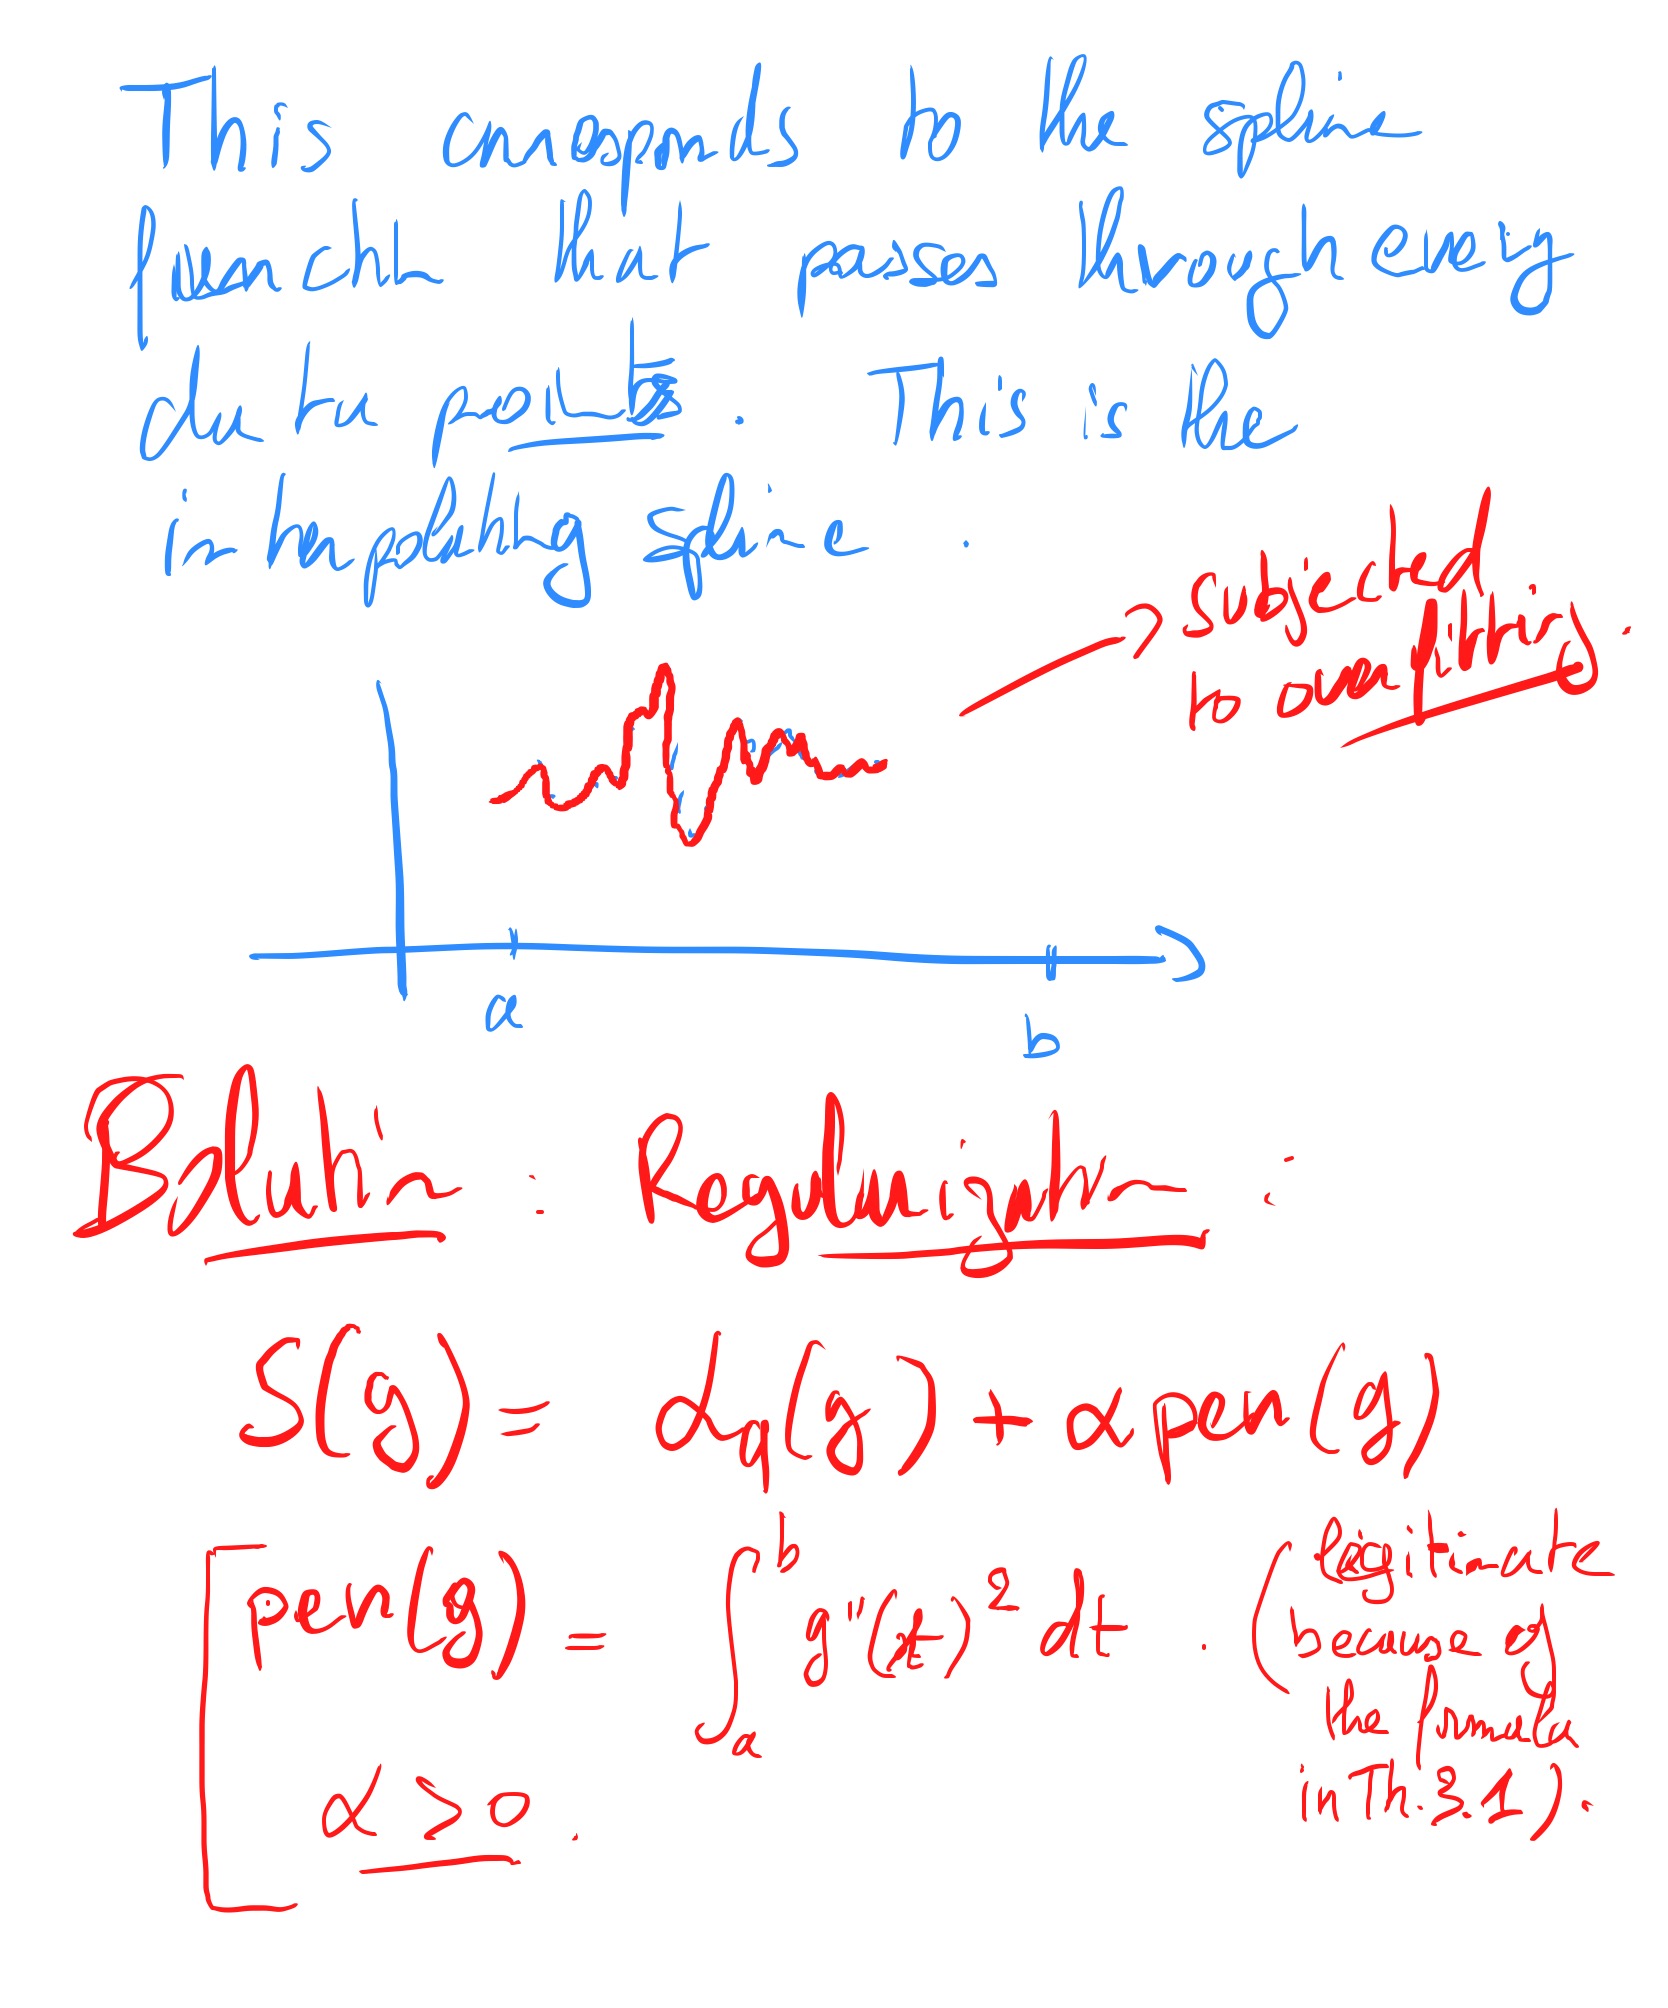 This corresponds to the spline
function that passes through every
data points. This is the
interpolating spline.
→ subjected
to overfitting.
a
b
Solution : Regularization :
S(g) = L_q(g) + α pen(g)
pen(g) = ∫_a^b g''(t)² dt . (legitimate
because of
the formula
in Th. 3.1).
α > 0 .